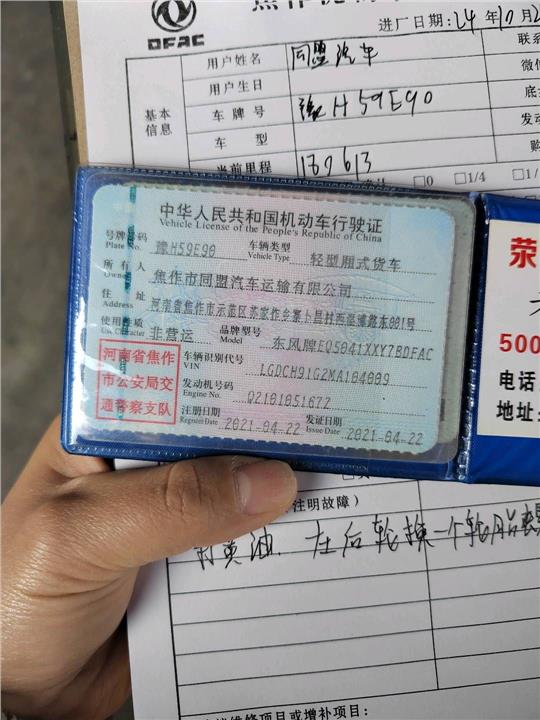 DFAC
进厂日期：24年10月2
基本
信息
用户姓名 同盟汽车
联系
用户生日
微信
车牌号 豫H59E90
底
车 型
发动
当前里程 187613
购
□0 □1/4 □
中华人民共和国机动车行驶证
Vehicle License of the People's Republic of China
号牌号码 豫H59E90 车辆类型 轻型厢式货车
Plate No. Vehicle Type
所有人 焦作市同盟汽车运输有限公司
Owner
住 址 河南省焦作市示范区苏家作乡寨卜昌村西
Address
使用性质 非营运 品牌型号 东风牌EQ5041XXY7BDFAC
Use Character Model
河南省焦作
市公安局交
通警察支队
车辆识别代号 LGDCH91G2MA184089
VIN
发动机号码 Q210105167Z
Engine No.
注册日期 2021-04-22 发证日期 2021-04-22
Register Date Issue Date
荥
500
电话
地址：
注明故障）
打黄油、左后轮换一个轮胎
维修项目或增补项目：